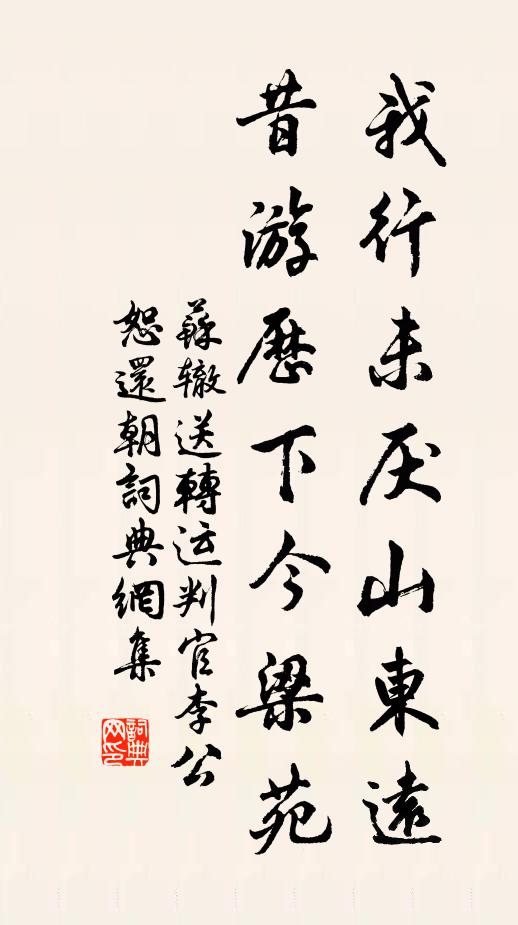 我行未厌山東遠
昔游歷下今梁苑
蘇辙送轉运判官李公
恕還朝詞典網集
詞典网印